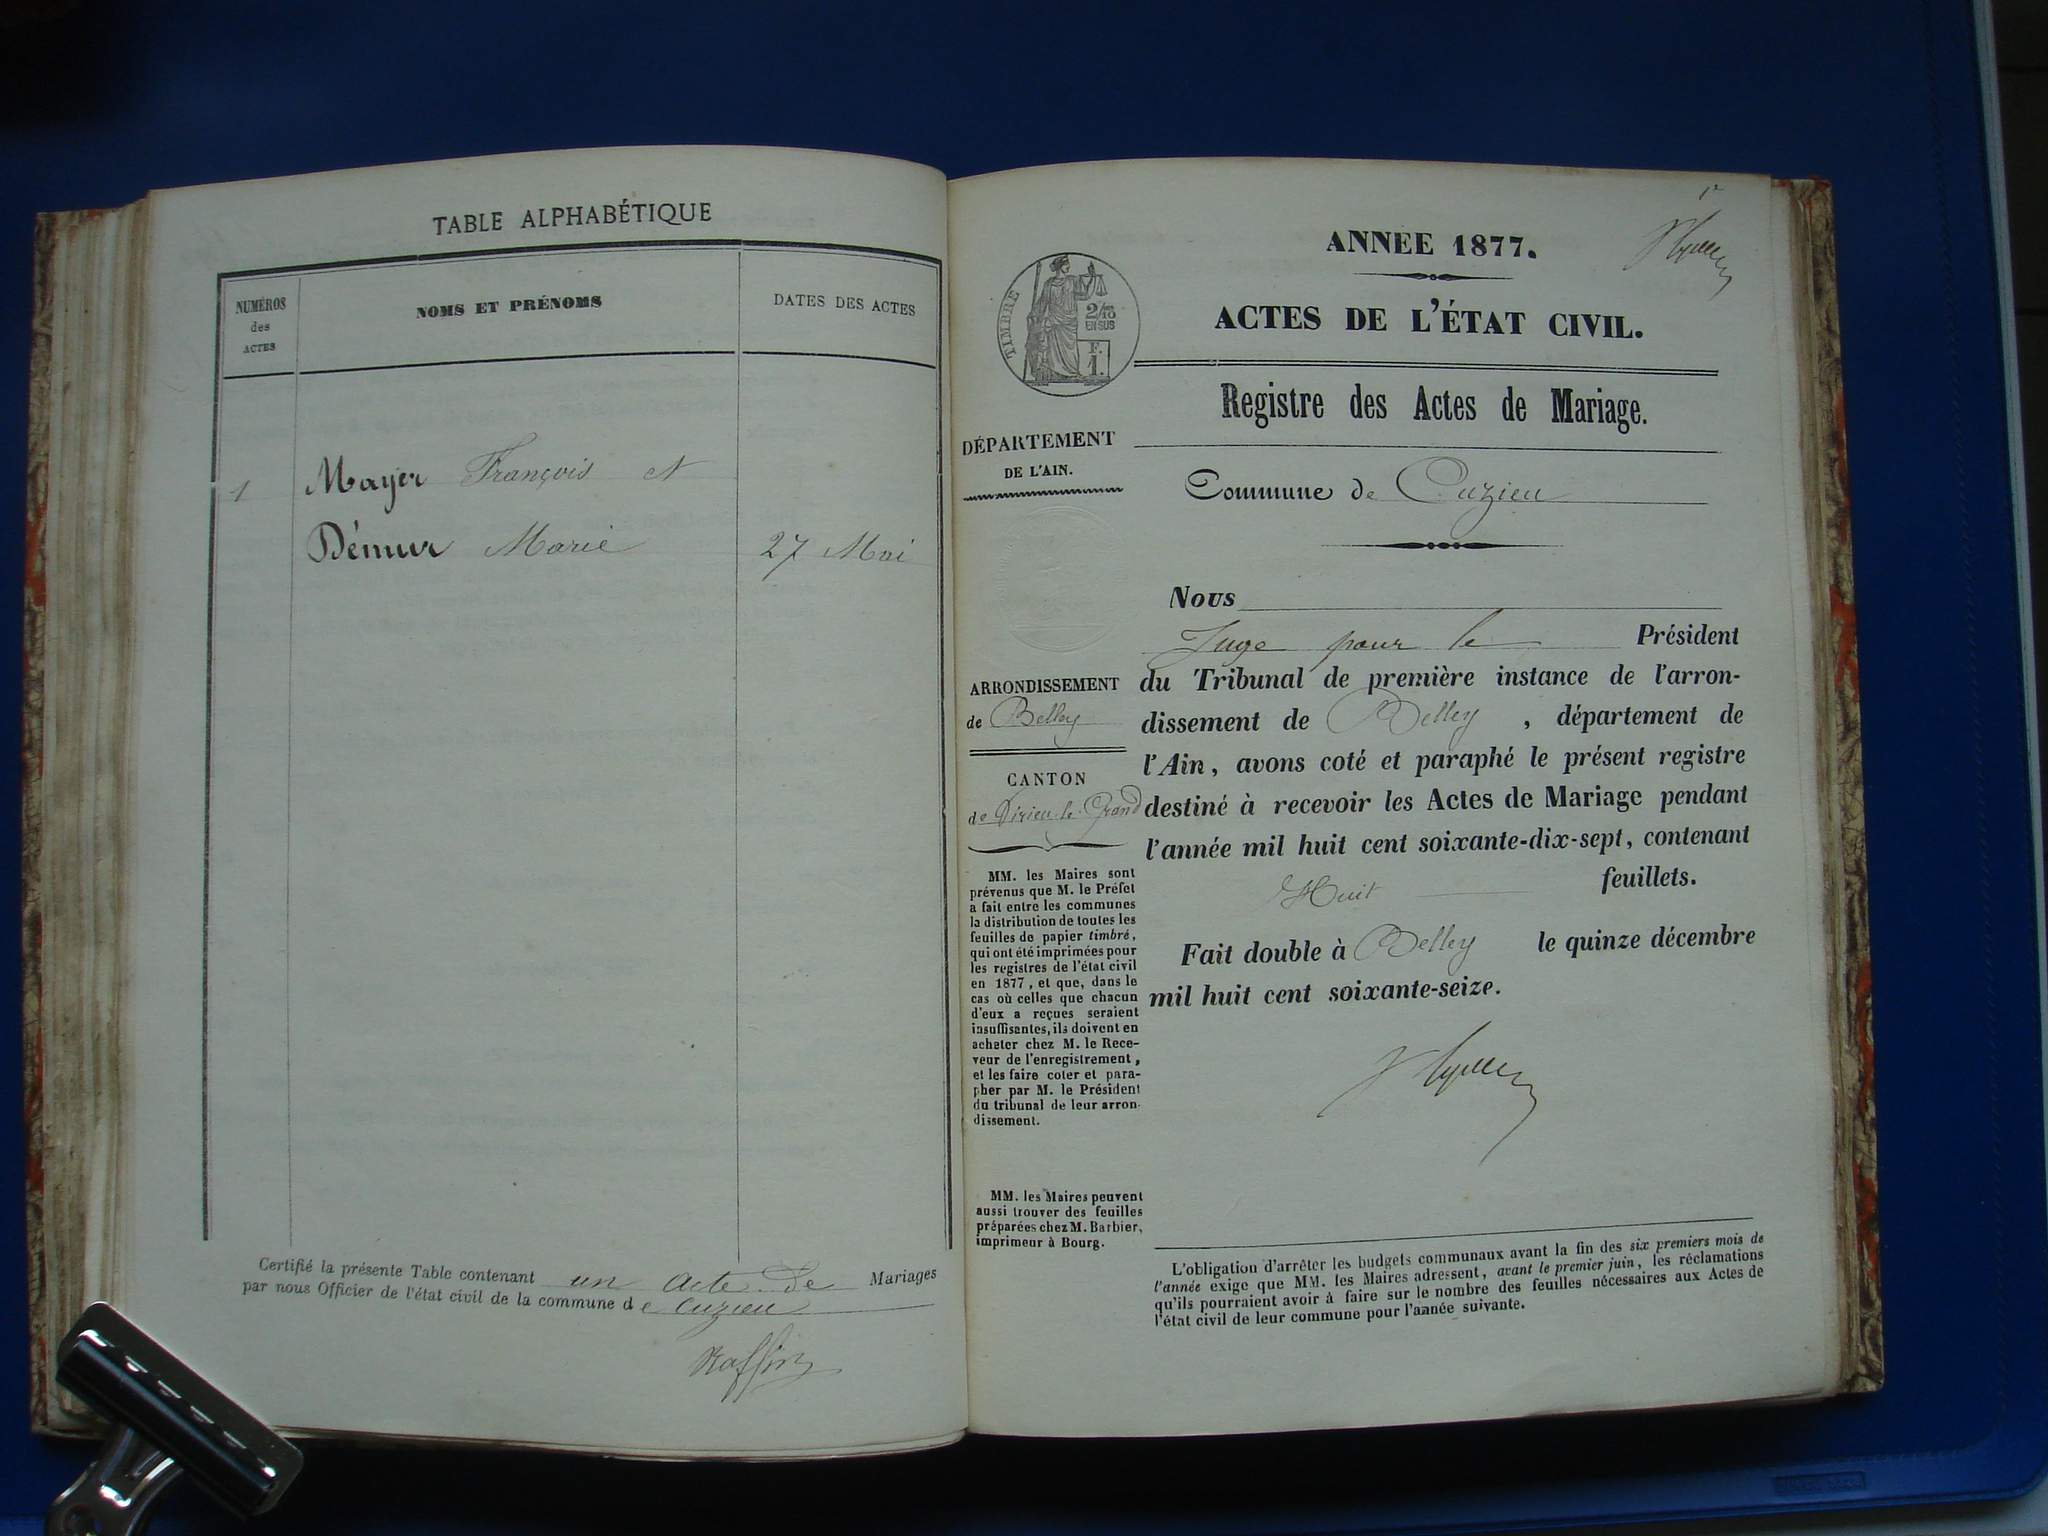 TABLE ALPHABÉTIQUE
NUMÉROS
des
ACTES
NOMS ET PRÉNOMS
DATES DES ACTES
1 Mayer François et
Démur Marie 27 Mai
Certifié la présente Table contenant un acte de Mariages
par nous Officier de l'état civil de la commune de Cuzieu
ANNÉE 1877.
TIMBRE
2/10
EN SUS
F.
1.
ACTES DE L'ÉTAT CIVIL.
Registre des Actes de Mariage.
DÉPARTEMENT
DE L'AIN.
Commune de Cuzieu
ARRONDISSEMENT
de Belley
CANTON
de Virieu-le-Grand
MM. les Maires sont
prévenus que M. le Préfet
a fait entre les communes
la distribution de toutes les
feuilles de papier timbré,
qui ont été imprimées pour
les registres de l'état civil
en 1877, et que, dans le
cas où celles que chacun
d'eux a reçues seraient
insuffisantes, ils doivent en
acheter chez M. le Rece-
veur de l'enregistrement,
et les faire coter et para-
pher par M. le Président
du tribunal de leur arron-
dissement.
MM. les Maires peuvent
aussi trouver des feuilles
préparées chez M. Barbier,
imprimeur à Bourg.
Nous
Juge pour le Président
du Tribunal de première instance de l'arron-
dissement de Belley, département de
l'Ain, avons coté et paraphé le présent registre
destiné à recevoir les Actes de Mariage pendant
l'année mil huit cent soixante-dix-sept, contenant
Huit feuillets.
Fait double à Belley le quinze décembre
mil huit cent soixante-seize.
L'obligation d'arrêter les budgets communaux avant la fin des six premiers mois de
l'année exige que MM. les Maires adressent, avant le premier juin, les réclamations
qu'ils pourraient avoir à faire sur le nombre des feuilles nécessaires aux Actes de
l'état civil de leur commune pour l'année suivante.